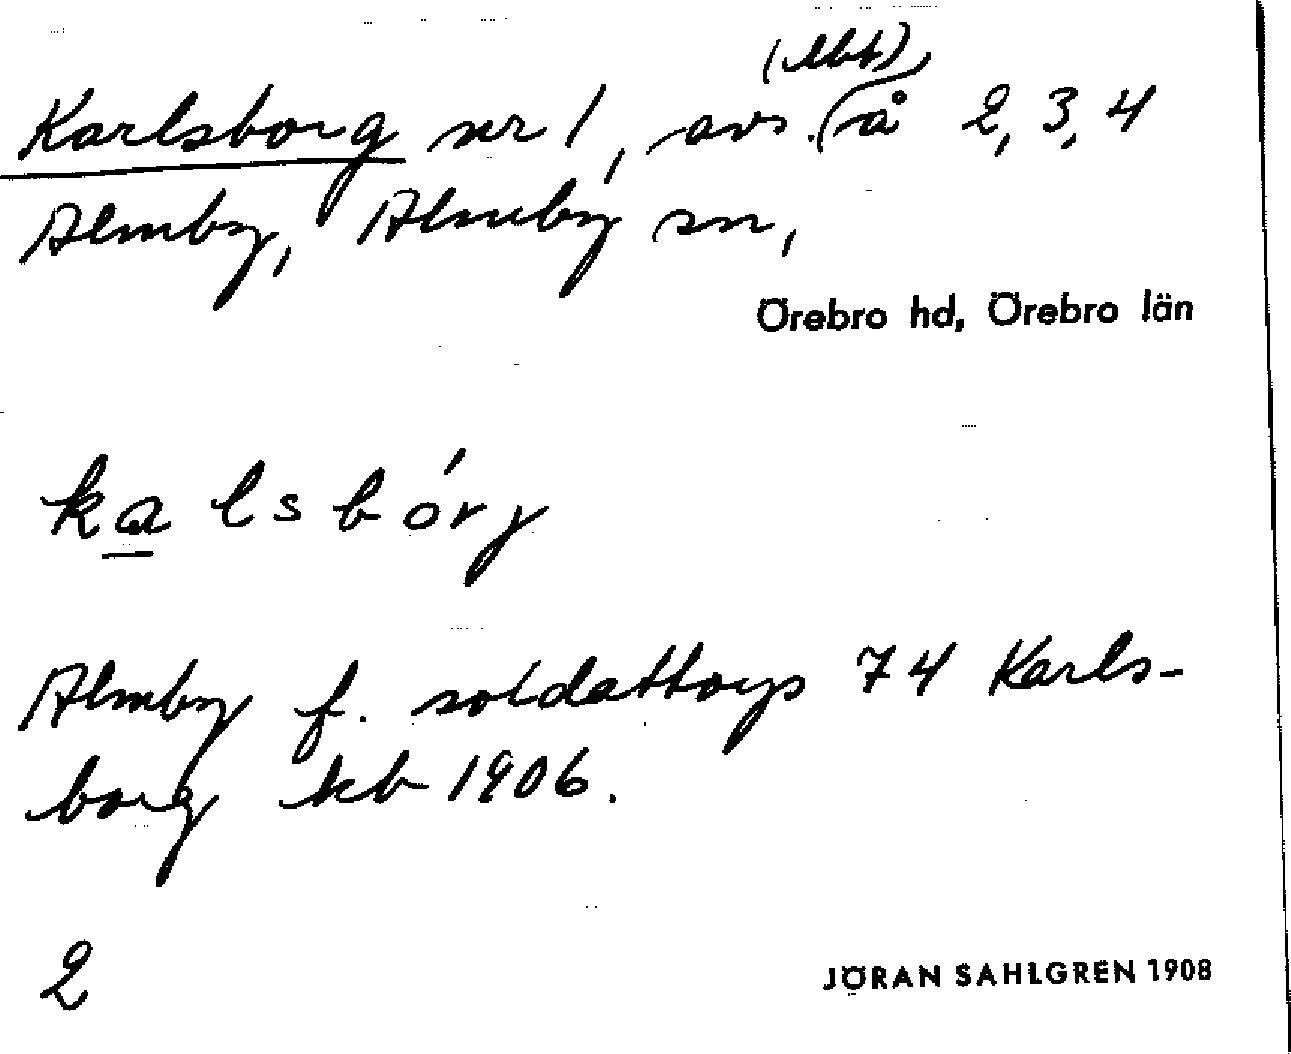 (lbt)
Karlsborg nr 1, avs. (å 2, 3, 4
Almby, Almby sn,
Örebro hd, Örebro län
kalsbórj
Almby f. soldattorp 74 Karls-
borg kb 1906.
2
JÖRAN SAHLGREN 1908